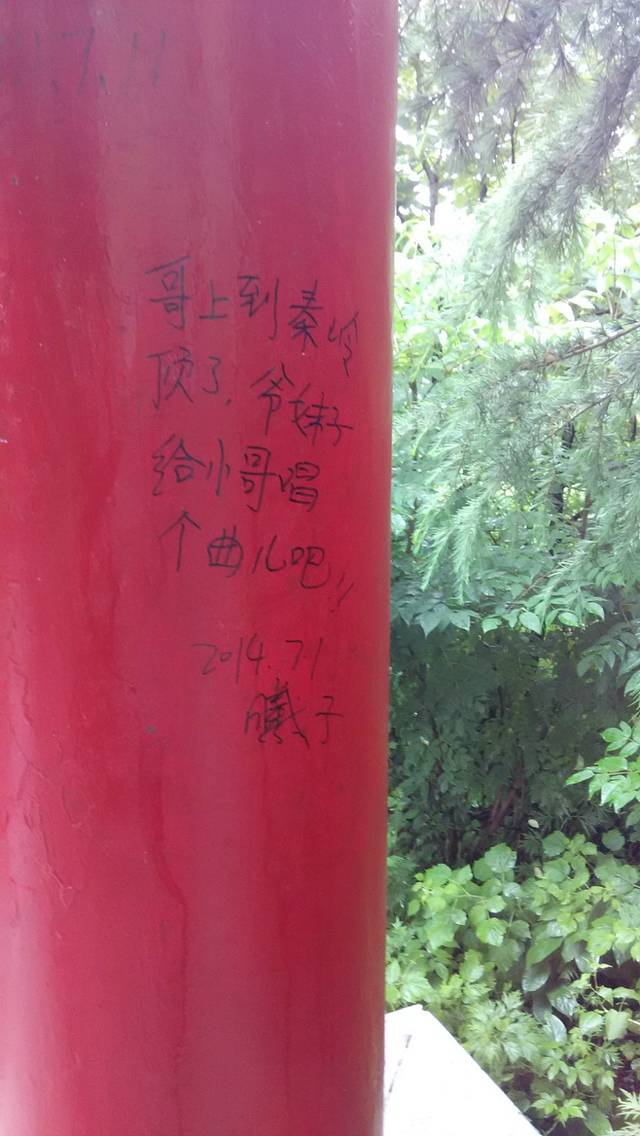 7.11
哥上到秦岭
顶了,爷妹子
给小哥唱
个曲儿吧!!
2014.7.1
子